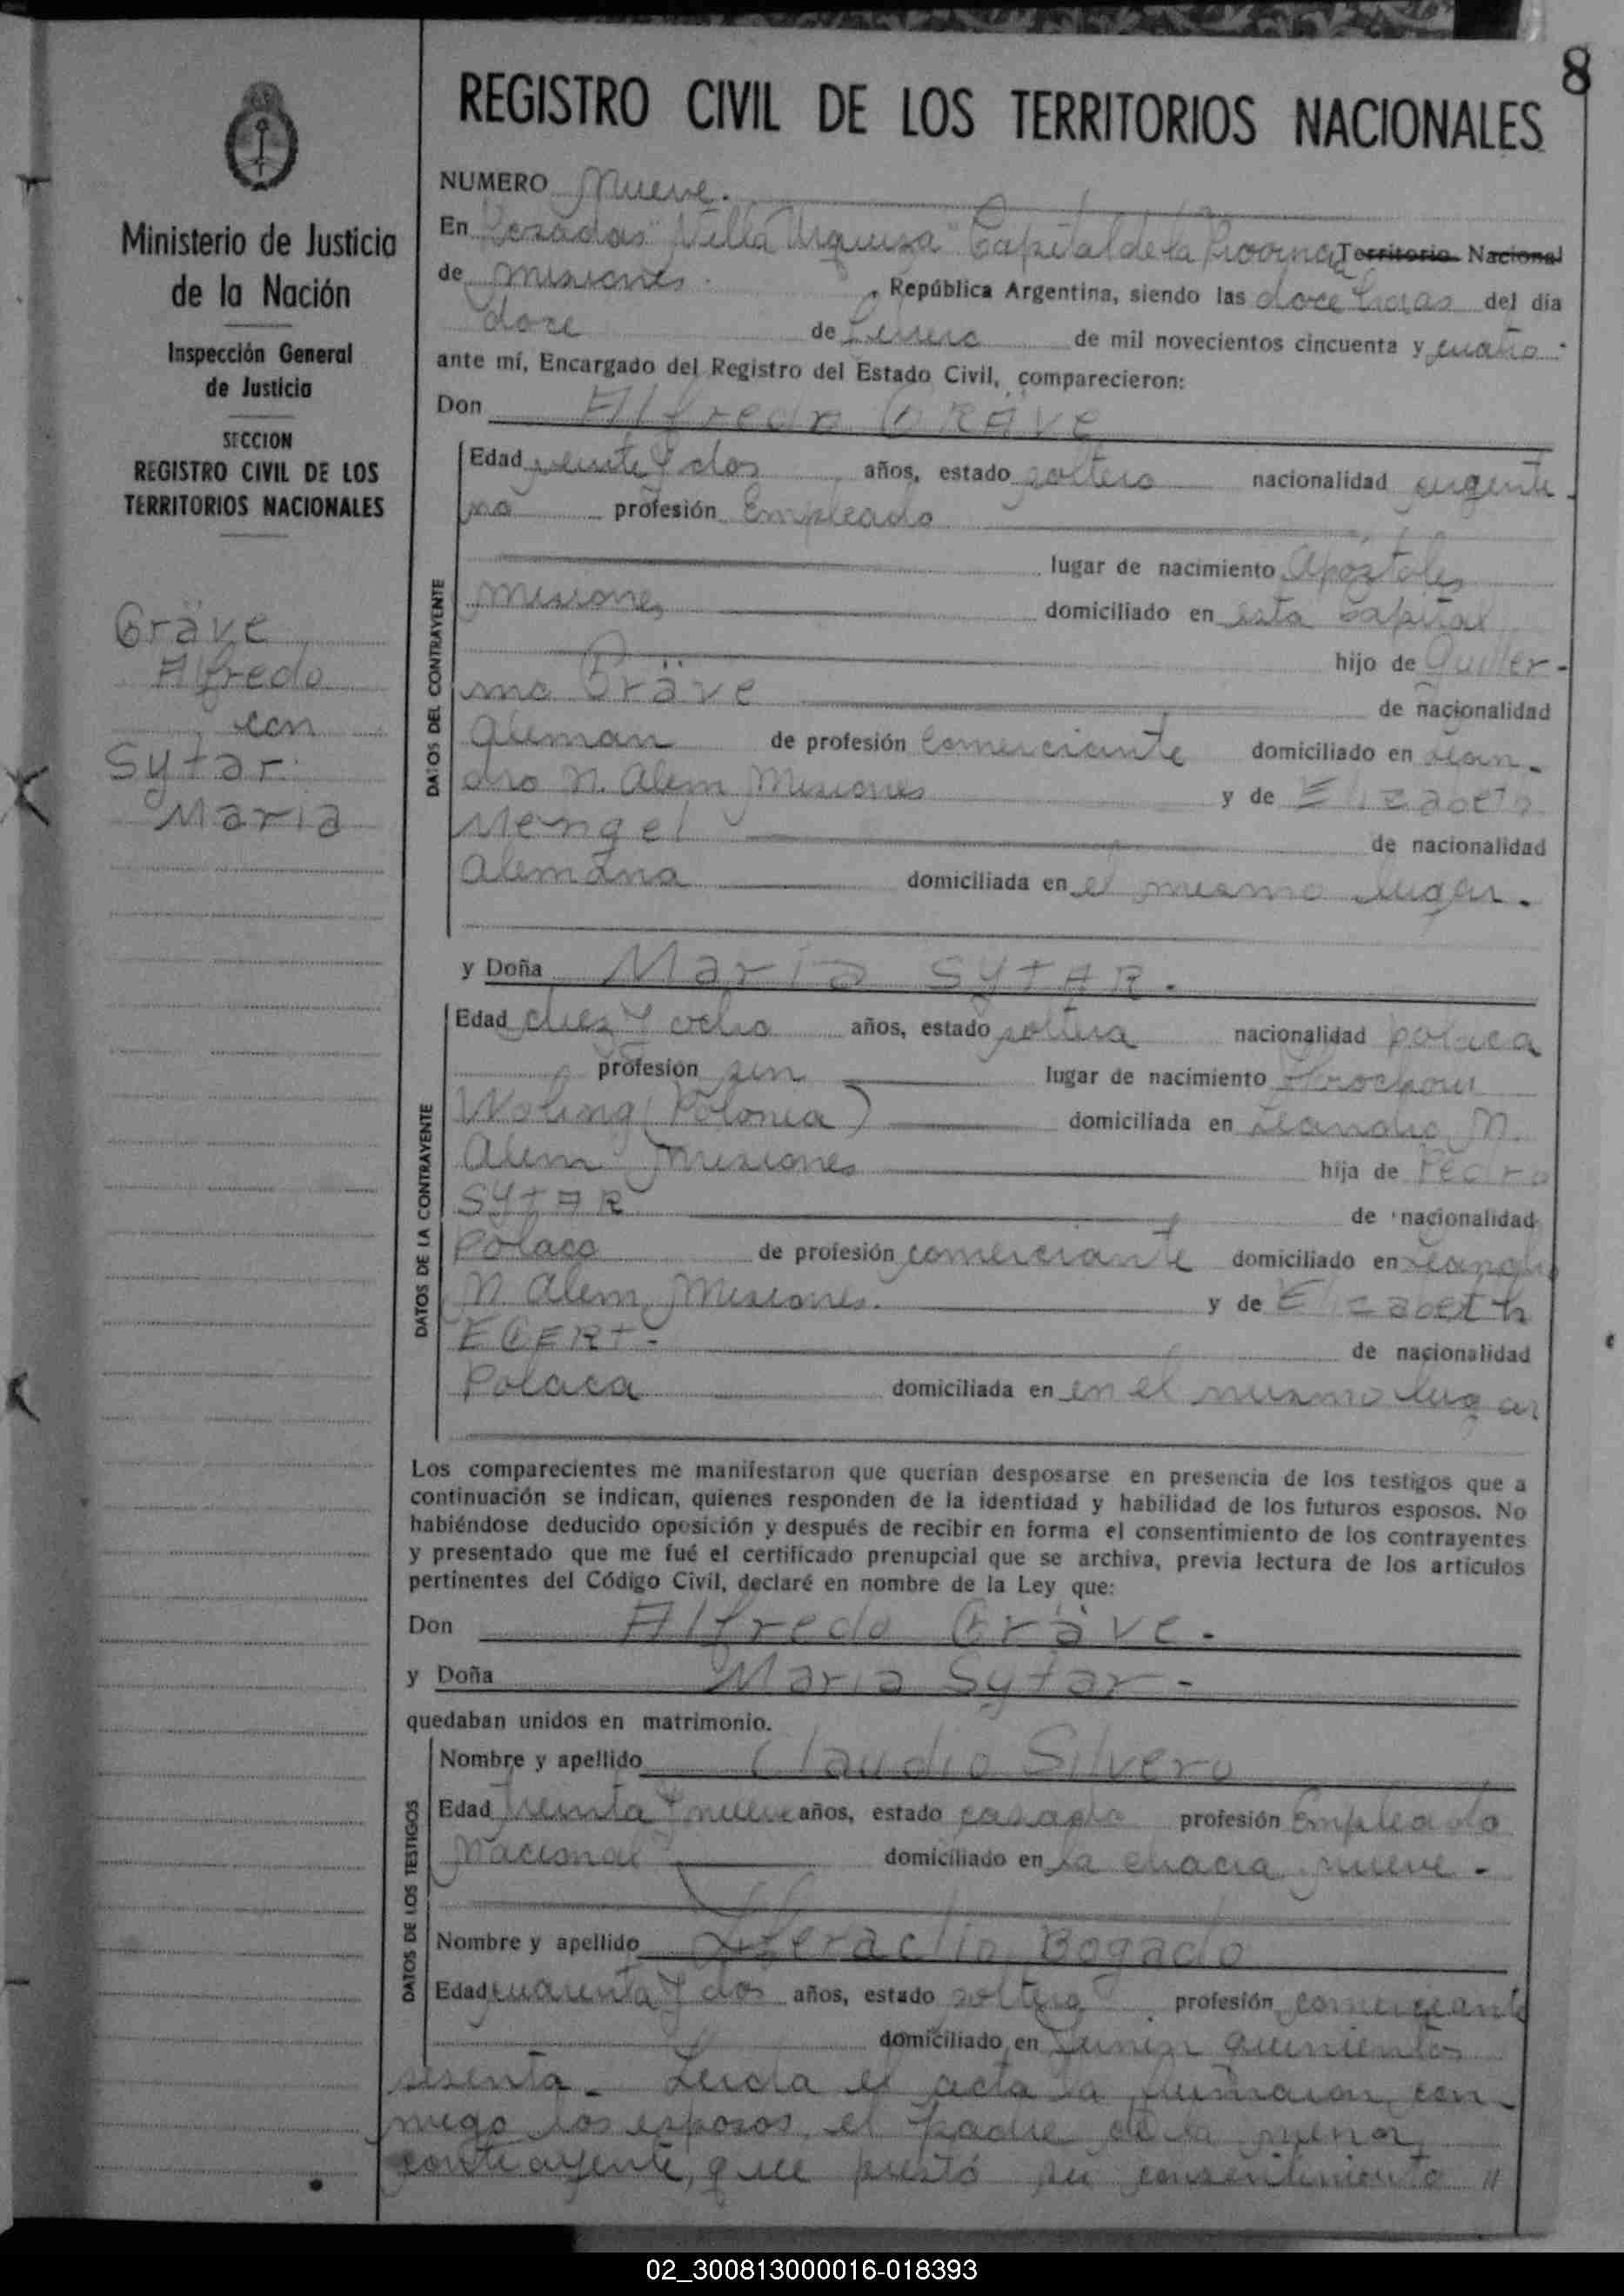 8
REGISTRO CIVIL DE LOS TERRITORIOS NACIONALES
Ministerio de Justicia
de la Nación
Inspección General
de Justicia
SECCION
REGISTRO CIVIL DE LOS
TERRITORIOS NACIONALES
Gräve
Alfredo
con
Sytar
Maria
NUMERO Nueve.
En Posadas "Villa Urquiza" Capital de la Provincia Territorio Nacional
de Misiones. República Argentina, siendo las doce horas del día
doce de Enero de mil novecientos cincuenta y cuatro.
ante mí, Encargado del Registro del Estado Civil, comparecieron:
Don Alfredo GRÄVE
DATOS DEL CONTRAYENTE
Edad veinte y dos años, estado soltero nacionalidad argenti
no profesión Empleado
lugar de nacimiento Apóstoles
Misiones domiciliado en esta Capital
hijo de Guiller-
mo Gräve de nacionalidad
Aleman de profesión Comerciante domiciliado en Lean-
dro N. Alem Misiones y de Elizabeth
Mengel de nacionalidad
Alemana domiciliada en el mismo lugar.
y Doña Maria SYtAR.
DATOS DE LA CONTRAYENTE
Edad diez y ocho años, estado soltera nacionalidad polaca
profesión sin lugar de nacimiento
(Polonia) domiciliada en Leandro N.
Alem Misiones hija de Pedro
SYtAR de nacionalidad
Polaco de profesión comerciante domiciliado en Leandro
N. Alem, Misiones. y de Elizabeth
de nacionalidad
Polaca domiciliada en en el mismo lugar
Los comparecientes me manifestaron que querían desposarse en presencia de los testigos que a
continuación se indican, quienes responden de la identidad y habilidad de los futuros esposos. No
habiéndose deducido oposición y después de recibir en forma el consentimiento de los contrayentes
y presentado que me fué el certificado prenupcial que se archiva, previa lectura de los artículos
pertinentes del Código Civil, declaré en nombre de la Ley que:
Don Alfredo Gräve.
y Doña Maria Sytar-
quedaban unidos en matrimonio.
DATOS DE LOS TESTIGOS
Nombre y apellido Claudio Silvero
Edad treinta y nueve años, estado casado profesión Empleado
Nacional domiciliado en la chacra nueve-
Nombre y apellido Heraclio Bogado
Edad cuarenta y dos años, estado soltero profesión comerciante
domiciliado en Junin quinientos
sesenta- Leida el acta la firmaron con-
migo los esposos, el padre de la menor
contrayente, que prestó su consentimiento "
02_300813000016-018393